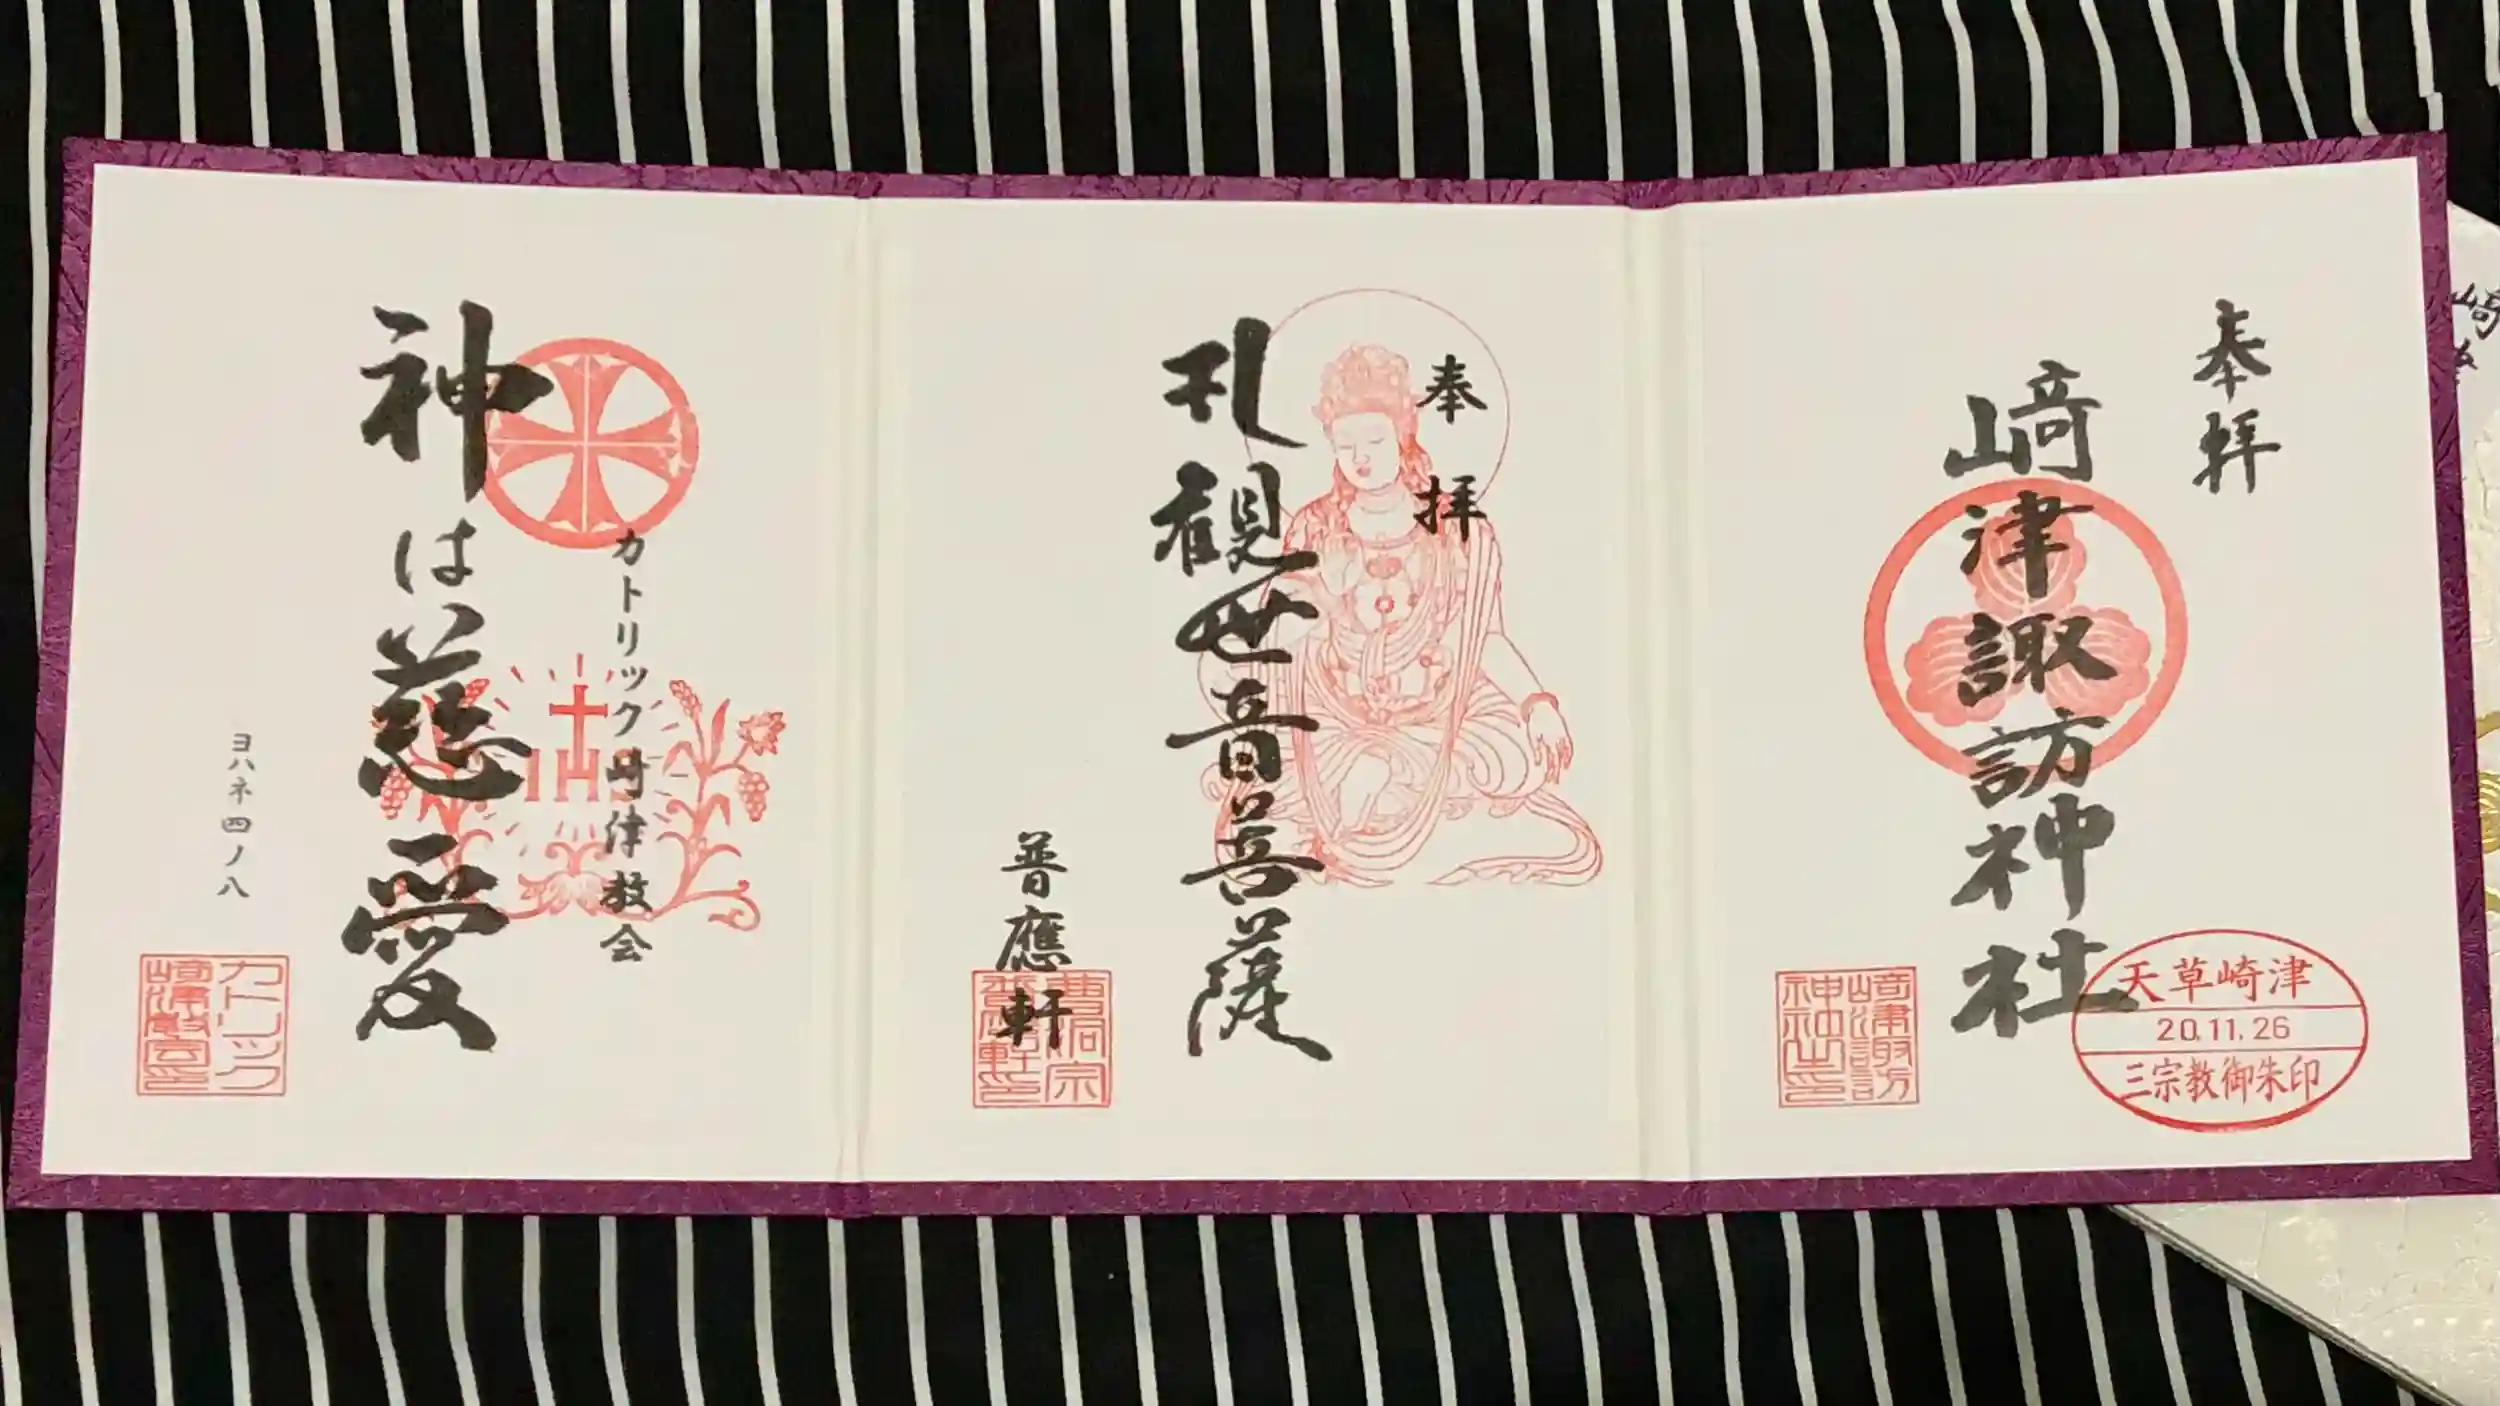 奉拝
﨑津諏訪神社
崎津諏訪
神社之印
天草崎津
20.11.26
三宗教御朱印
奉拝
礼観世音菩薩
普應軒
曹洞宗
普應軒印
カトリック﨑津教会
IHS
神は慈愛
ヨハネ四ノ八
カトリック
崎津教会印
崎